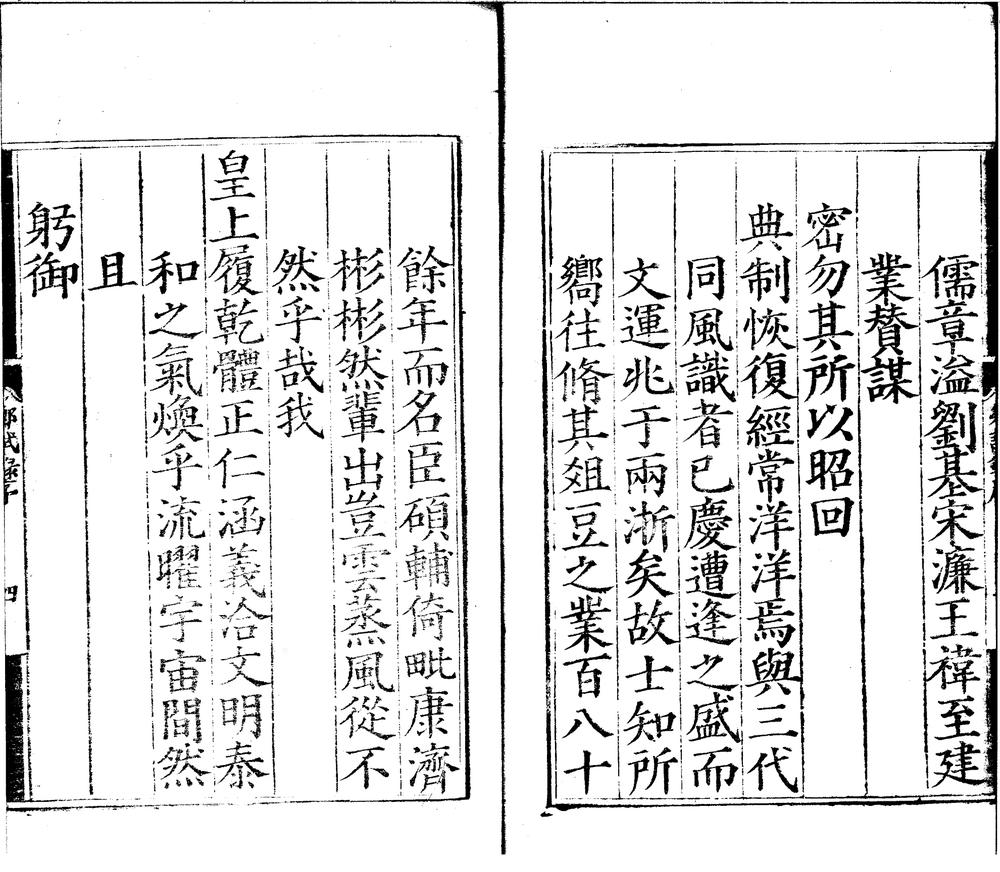 儒章溢劉基宋濂王褘至建
業贊謀
密勿其所以昭回
典制恢復經常洋洋焉與三代
同風識者已慶遭逢之盛而
文運兆于兩浙矣故士知所
嚮往脩其俎豆之業百八十
餘年而名臣碩輔倚毗康濟
彬彬然輩出豈雲蒸風從不
然乎哉我
皇上履乾體正仁涵義洽文明泰
和之氣煥乎流曜宇宙間然
且
躬御
鄉試錄序
四